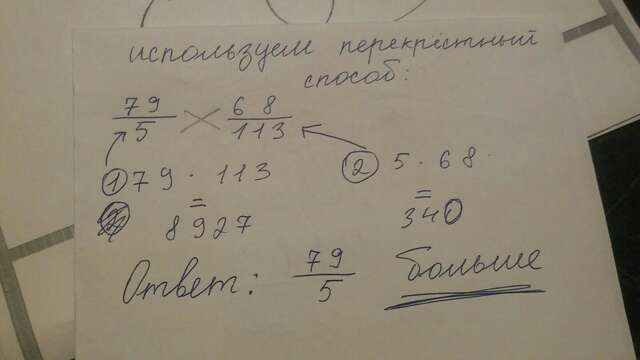 используем перекрёстный
способ:
79 68
5 113
1 79 · 113 2 5 · 68
= =
8927 340
Ответ: 79/5 больше